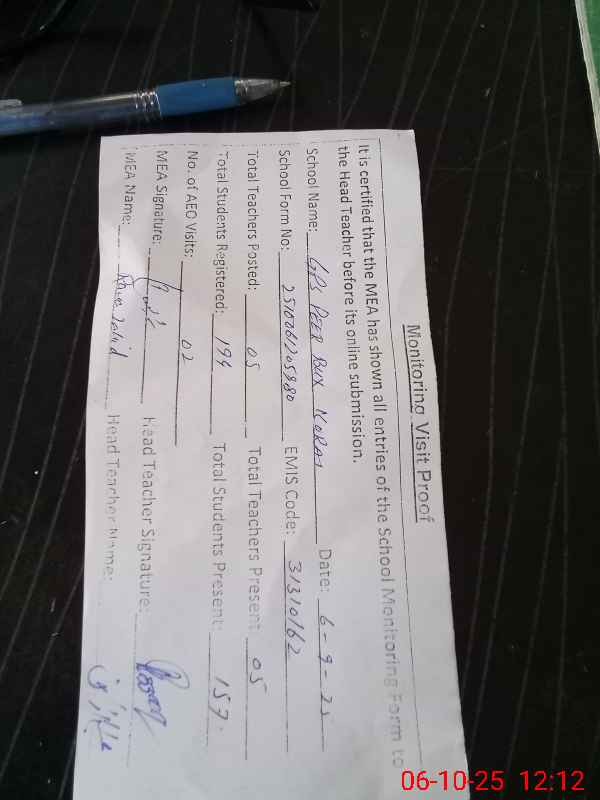 Monitoring Visit Proof
It is certified that the MEA has shown all entries of the School Monitoring Form to
the Head Teacher before its online submission.
School Name: GPS PEER BUX Date: 6-9-25
School Form No: EMIS Code: 31310162
Total Teachers Posted: 05 Total Teachers Present 05
Total Students Registered: 194 Total Students Present: 157
No. of AEO Visits: 02
MEA Signature: Head Teacher Signature:
MEA Name: Head Teacher Name:
06-10-25 12:12